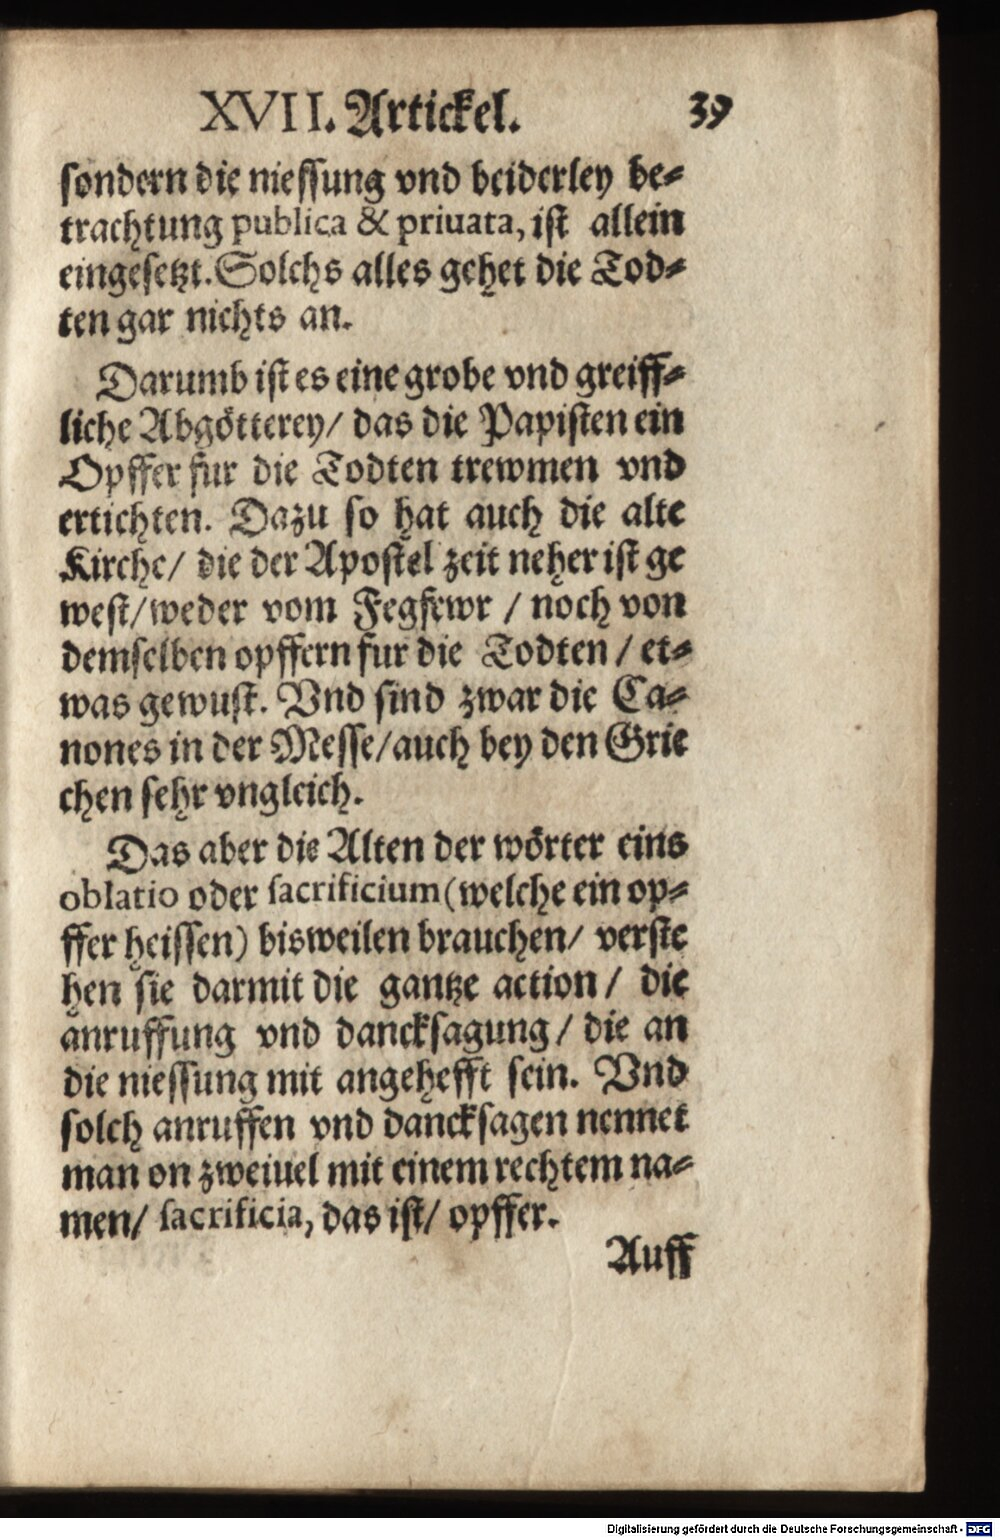 XVII. Artickel. 39
sondern die niessung vnd beiderley be-
trachtung publica & priuata, ist allein
eingesetzt. Solchs alles gehet die Tod-
ten gar nichts an.
Darumb ist es eine grobe vnd greiff-
liche Abgötterey/ das die Papisten ein
Opffer fur die Todten trewmen vnd
ertichten. Dazu so hat auch die alte
Kirche/ die der Apostel zeit neher ist ge
west/ weder vom Fegfewr / noch von
demselben opffern fur die Todten / et-
was gewust. Vnd sind zwar die Ca-
nones in der Messe/ auch bey den Grie
chen sehr vngleich.
Das aber die Alten der wörter eins
oblatio oder sacrificium (welche ein op-
ffer heissen) bisweilen brauchen/ verste
hen sie darmit die gantze action / die
anruffung vnd dancksagung / die an
die niessung mit angehefft sein. Vnd
solch anruffen vnd dancksagen nennet
man on zweiuel mit einem rechtem na-
men/ sacrificia, das ist/ opffer.
Auff
Digitalisierung gefördert durch die Deutsche Forschungsgemeinschaft - DFG